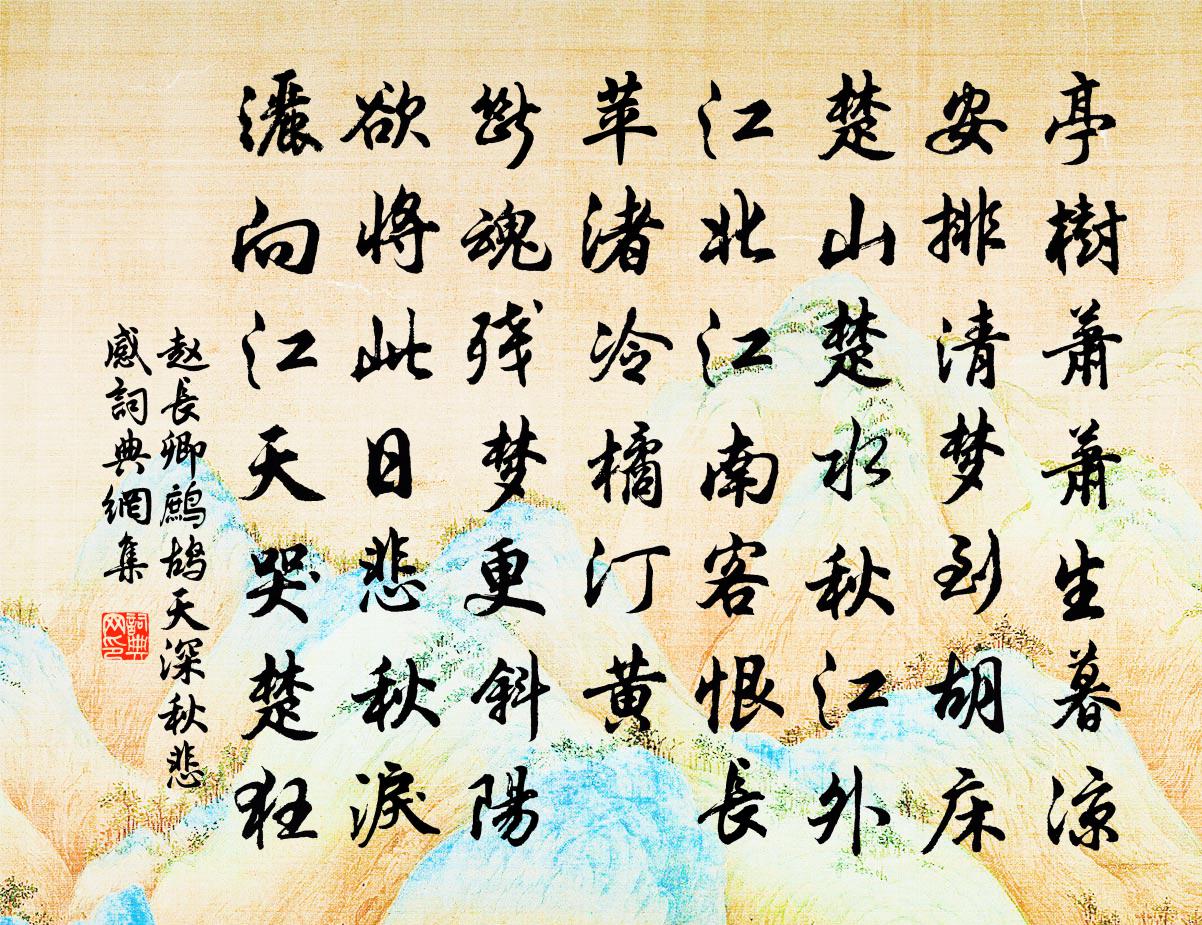 亭樹萧萧生暮涼
安排清梦到胡床
楚山楚水秋江外
江北江南客恨長
苹渚冷橘汀黄
断魂残梦更斜陽
欲将此日悲秋淚
灑向江天哭楚狂
赵長卿鹧鸪天深秋悲
感詞典網集
詞典网印